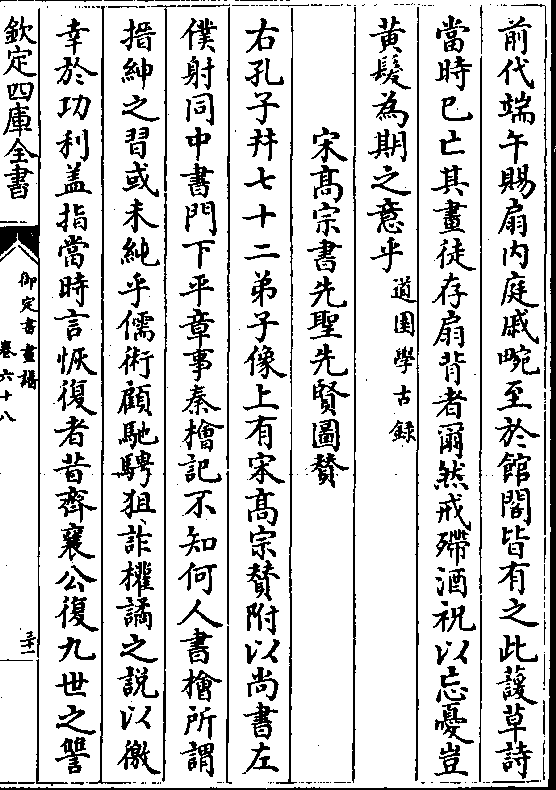 前代端午賜扇内庭戚畹至於館閣皆有之此諼草詩
當時已亡其畫徒存扇背者爾然戒殢酒祝以忘憂豈
黄髮為期之意乎道園學古録
宋髙宗書先聖先賢圖賛
右孔子幷七十二弟子像上有宋髙宗賛附以尚書左
僕射同中書門下平章事秦檜記不知何人書檜所謂
搢紳之習或未純乎儒術顧馳騁狙詐權譎之説以徼
幸於功利盖指當時言恢復者昔齊襄公復九世之讐
欽定四庫全書
御定書畫譜
卷六十八